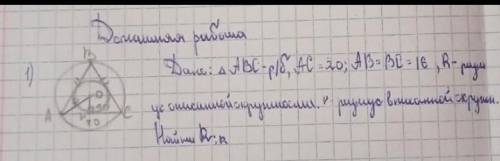 Домашняя работа
1) Дано: △ ABC - р/б, AC = 20; AB = BC = 16, R - ради
ус описанной окружности. r - радиус вписанной окружн.
Найти R; r
B
O
A C
20